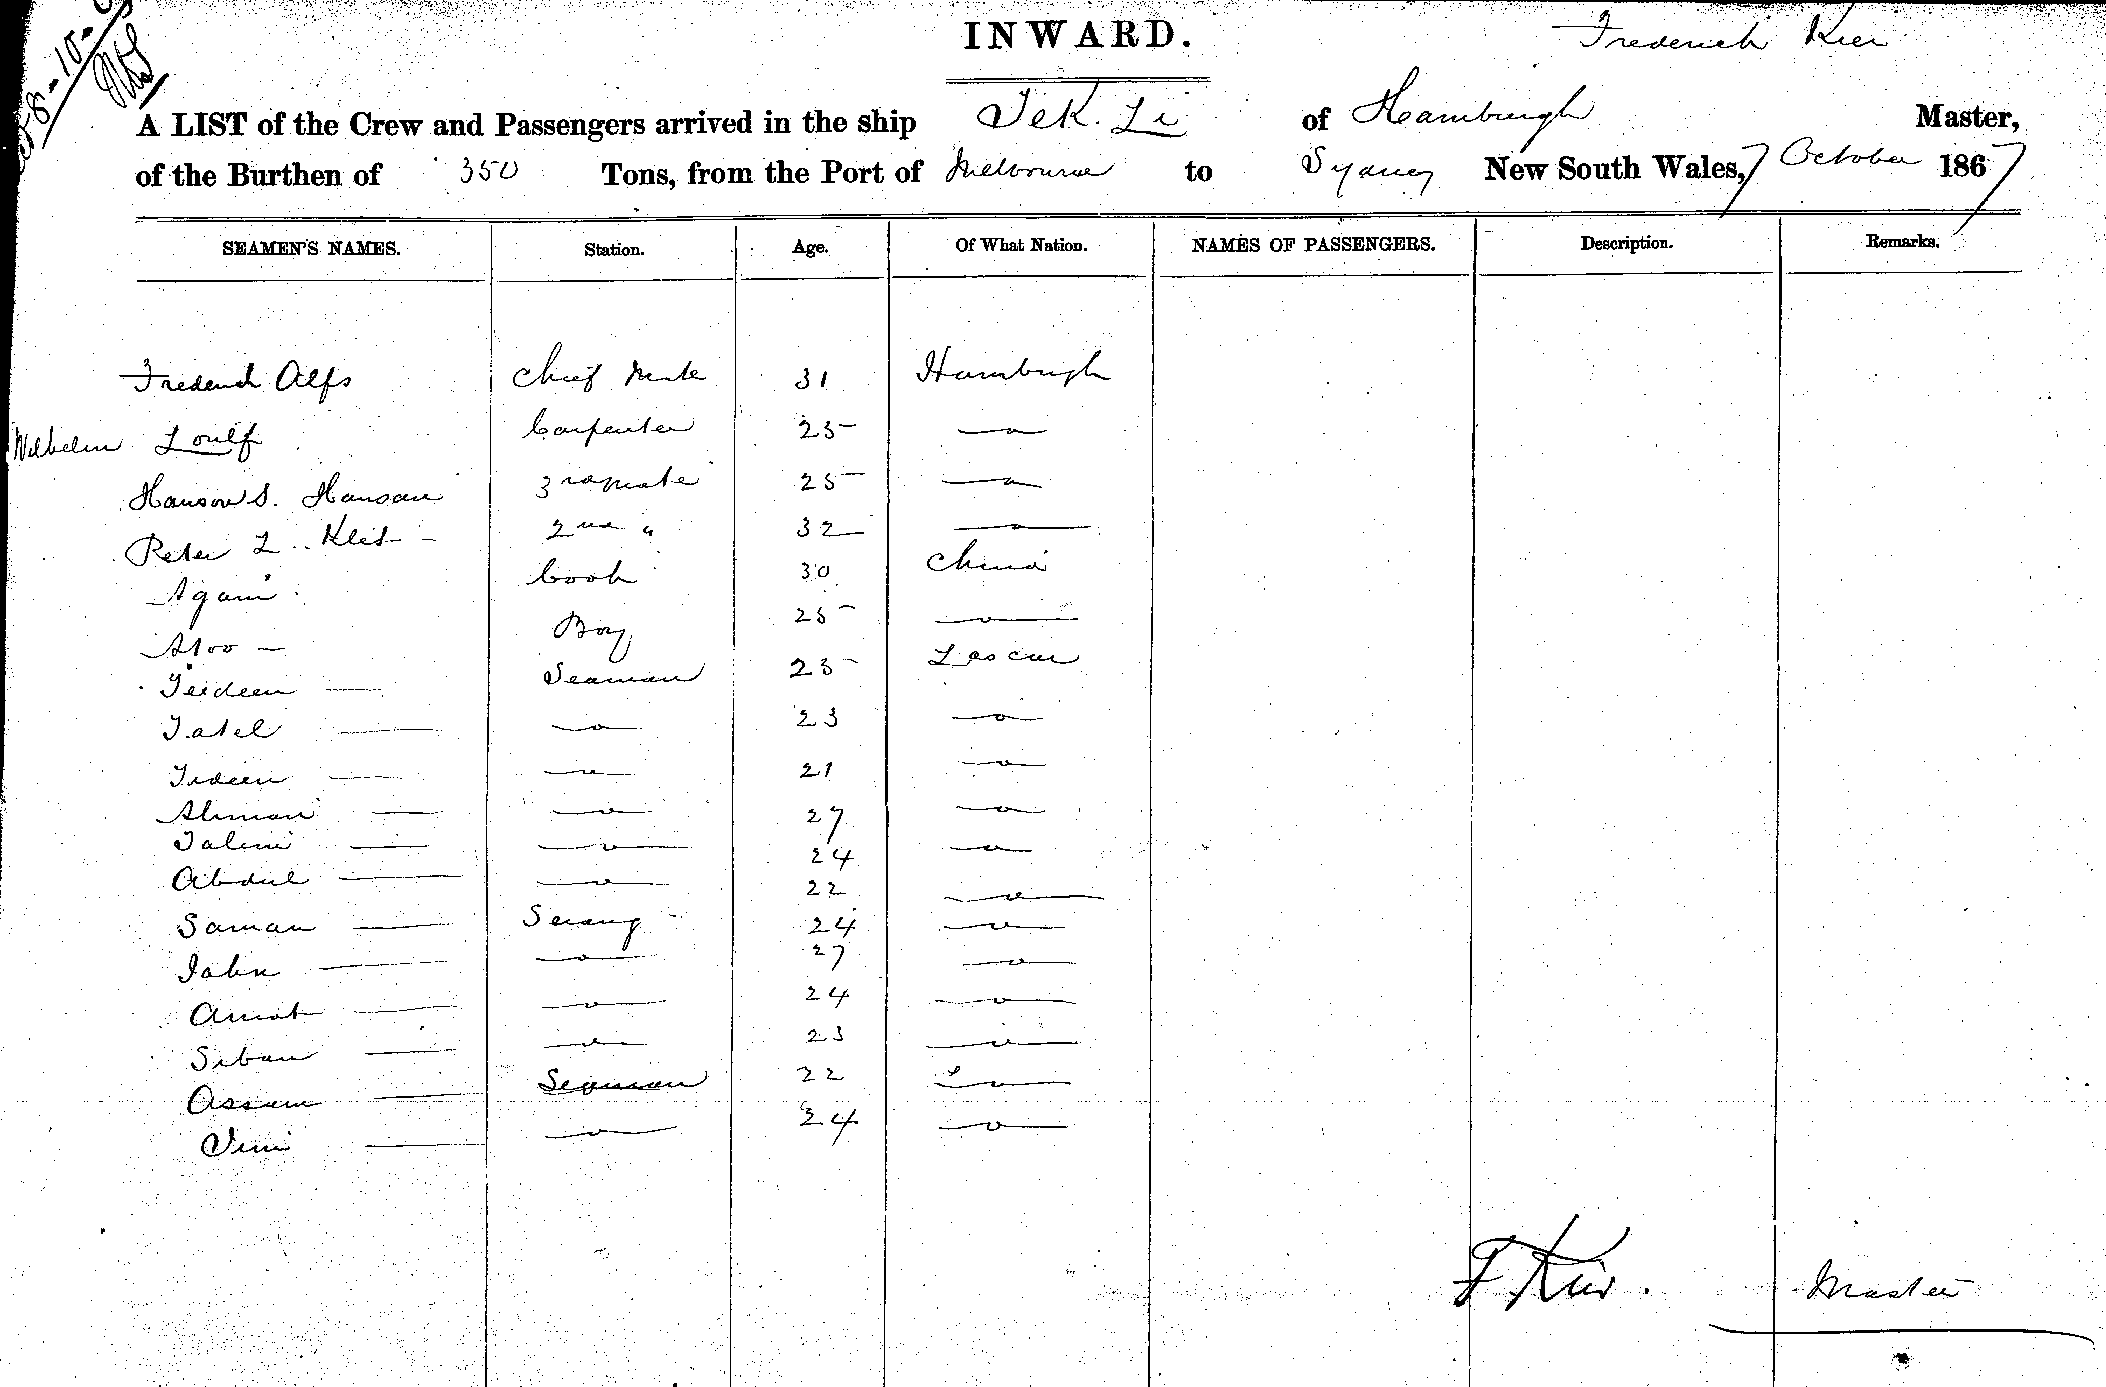 INWARD.
Frederich Kier
A LIST of the Crew and Passengers arrived in the ship Tek. Li of Hamburgh Master,
of the Burthen of 350 Tons, from the Port of Melbourne to Sydney New South Wales, 7 October 1867
SEAMEN'S NAMES. Station. Age. Of What Nation. NAMES OF PASSENGERS. Description. Remarks.
Frederich Alfs Chief Mate 31 Hamburgh
Wilhelm 25
Carpenter
Hanson S. Hansan 3rd mate 25
Peter L. 2nd " 32
Cook 30 China
Boy 25
Teideen Seaman 25 Lascar
Tatel 23
Tideen 21
Aliman 27
Talini 24
Abdul 22
Saman Serang 24
27
Amat 24
Siban 23
Assam Seaman 22
24
F Kier. Master